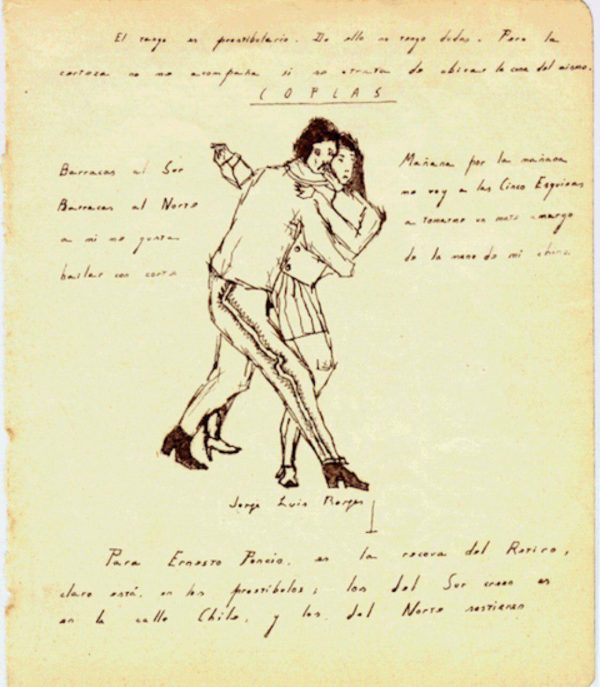 El tango es prostibulario. De ello no tengo dudas. Pero la
certeza no me acompaña si se trata de ubicar la cuna del mismo.
COPLAS
Barracas al Sur
Barracas al Norte
a mi me gusta
bailar con corte
Mañana por la mañana
me voy a las Cinco Esquinas
a tomarme un mate amargo
de la mano de mi china
Jorge Luis Borges
Para Ernesto Poncio, en la recova del Retiro,
claro está, en los prostíbulos; los del Sur creen es
en la calle Chile, y los del Norte sostienen